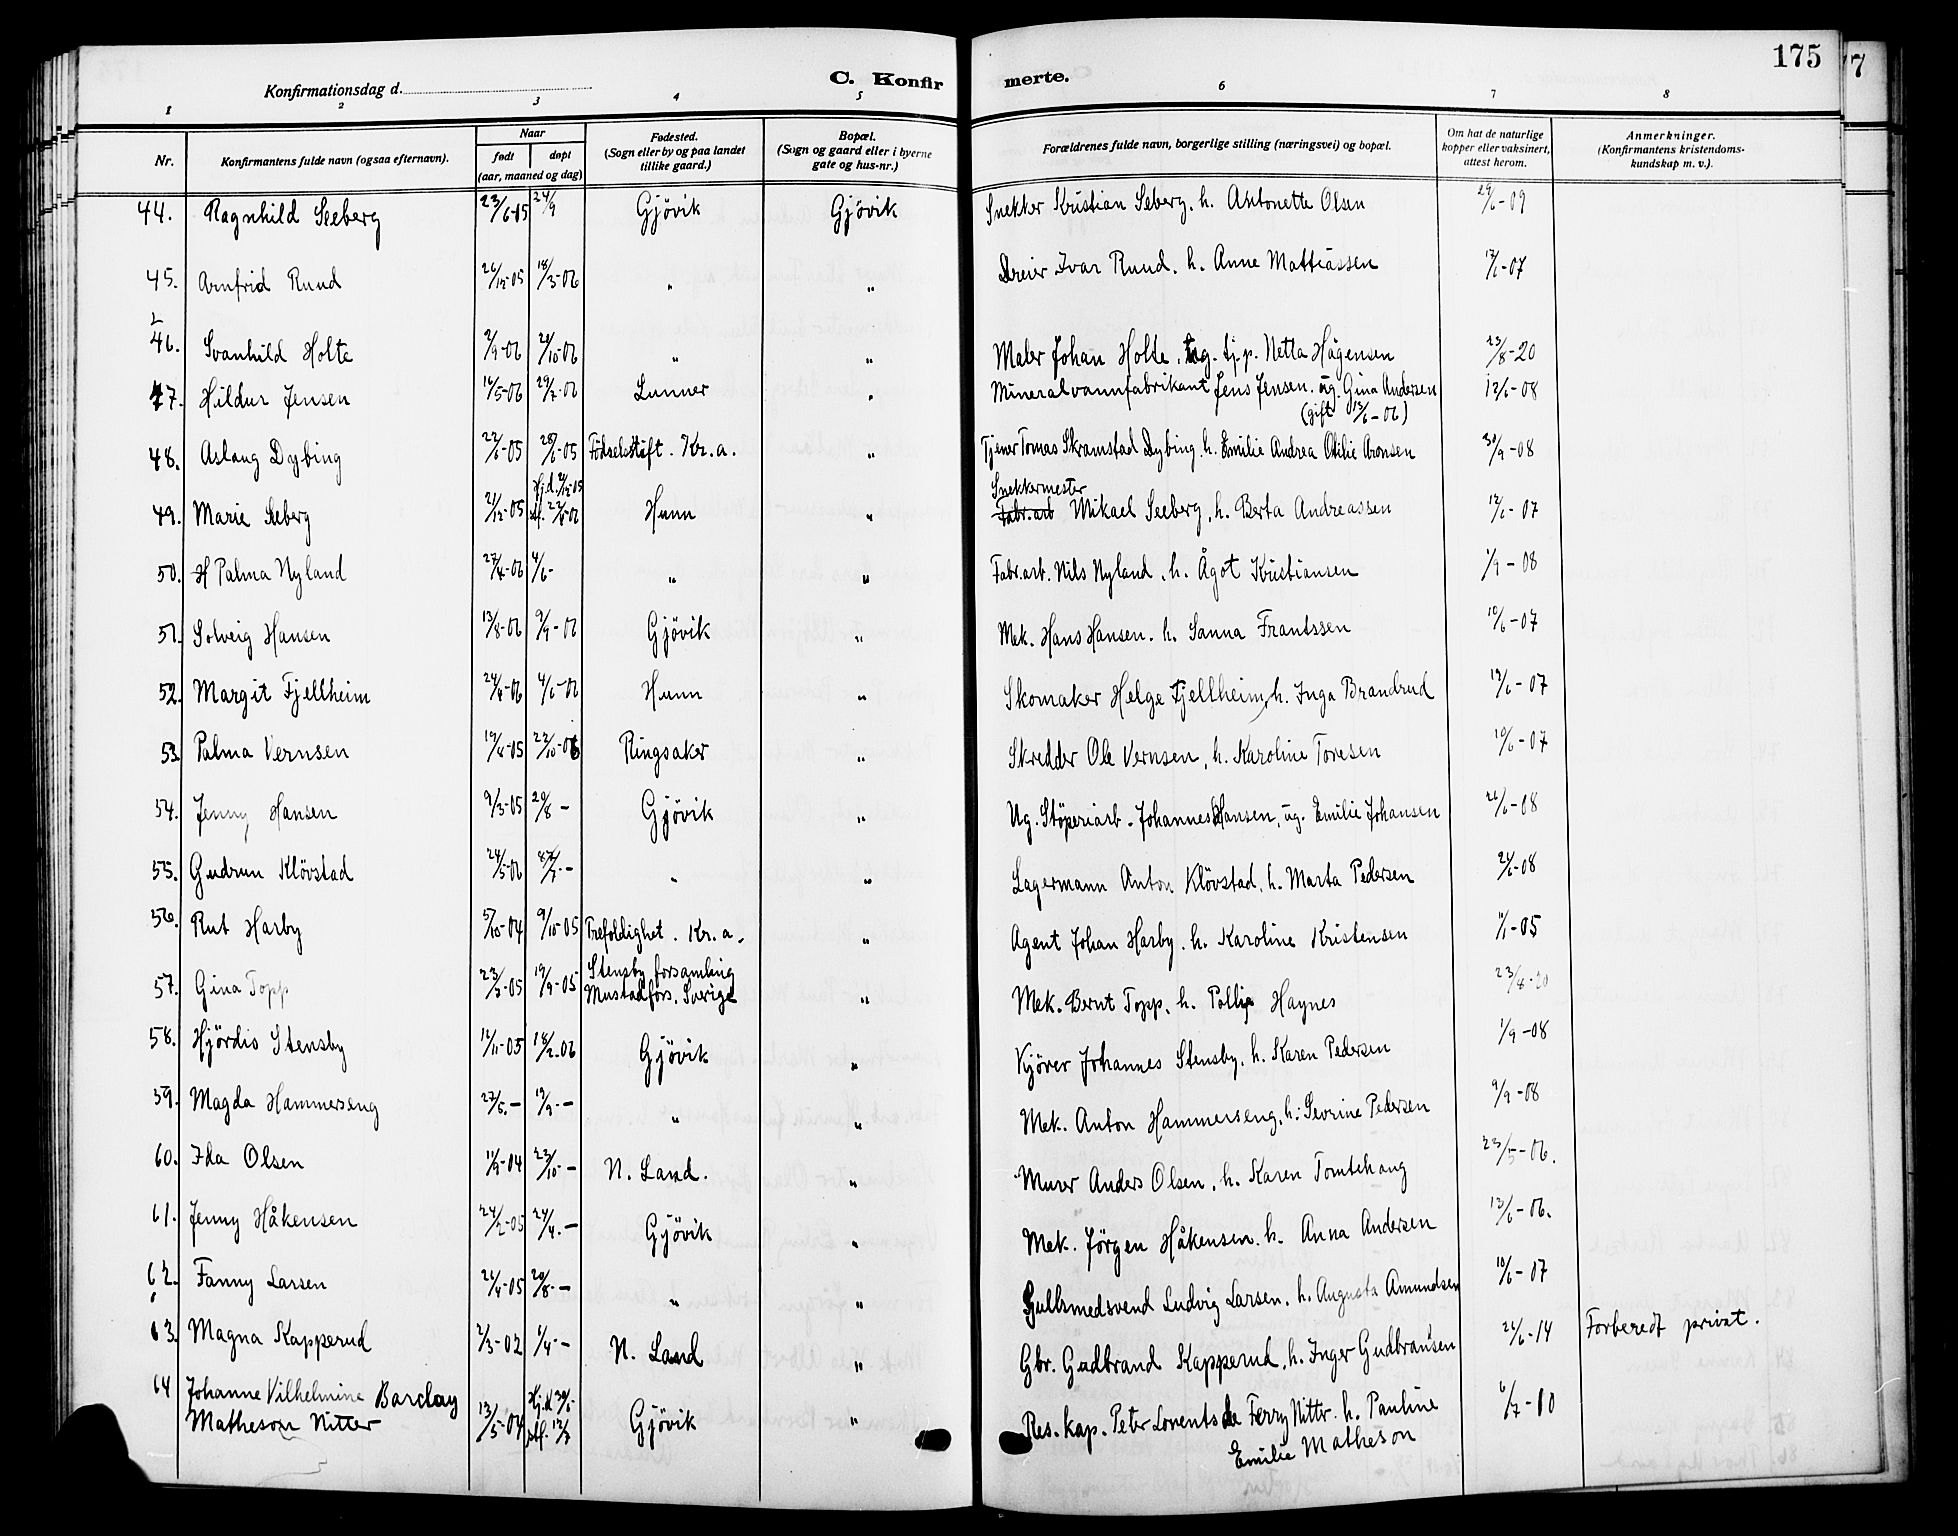 175
C. Konfirmerte.
Konfirmationsdag d.
1 2 3 4 5 6 7 8
Nr. Konfirmantens fulde navn (ogsaa efternavn). Naar født døpt (aar, maaned og dag) Fødested. (Sogn eller by og paa landet tillike gaard.) Bopæl. (Sogn og gaard eller i byerne gate og hus-nr.) Forældrenes fulde navn, borgerlige stilling (næringsvei) og bopæl. Om hat de naturlige kopper eller vaksinert, attest herom. Anmerkninger. (Konfirmantens kristendomskundskap m. v.).
44. Ragnhild Seeberg 23/6-05 24/9 Gjövik Gjövik Snekker Kristian Seberg. h. Antonette Olsen 29/6-09
45. Arnfrid Ruud 26/12-05 18/3-06 " " Dreier Ivar Ruud. h. Anne Mattiassen 12/6-07
46. Svanhild Holte 2/9-06 21/10-06 " " Maler Johan Holte, ug. tj.p. Netta Hågensen 23/8-20
47. Hildur Jensen 16/5-06 29/7-06 Lunner " Mineralvannfabrikant Jens Jensen. ug. Gina Andersen 12/6-08
(gift 13/6-06)
48. Aslaug Dybing 22/6-05 28/6-05 Födselsstift. Kr.a. " Tjener Tomas Skramstad Dybing. h. Emilie Andrea Otilie Aronsen 30/9-08
Snekkermester
49. Marie Seeberg 21/12-05 Hj.d. 21/12-05 stf. 22/6-06 Hunn " Fabr.arb Mikael Seeberg, h. Berta Andreassen 12/6-07
50. H Palma Nyland 27/4-06 4/6- " " Fabr.arb. Nils Nyland. h. Ågot Kristiansen 1/9-08
51. Solveig Hansen 13/8-06 9/9-06 Gjövik " Mek. Hans Hansen. h. Sanna Frantssen 10/6-07
52. Margit Fjellheim 24/4-06 4/6-06 Hunn " Skomaker Helge Fjellheim, h. Inga Brandrud 12/6-07
53. Palma Vernsen 19/4-05 22/10-06 Ringsaker " Skredder Ole Vernsen, h. Karoline Toresen 10/6-07
54. Jenny Hansen 9/3-05 20/8- Gjövik " Ug. Stöperiarb. Johannes Hansen, ug. Emilie Johansen 26/6-08
55. Gudrun Klövstad 24/5-06 " " Lagermann Anton Klövstad, h. Marta Pedersen 24/6-08
56. Rut Harby 5/10-04 9/10-05 Trefoldighet. Kr.a. " Agent Johan Harby. h. Karoline Kristensen 11/1-05
57. Gina Topp 23/7-05 19/9-05 Stensby forsamling Mustadfors. Sverige " Mek. Bernt Topp, h. Pollie Haynes 23/8-20
58. Hjördis Stensby 16/11-05 18/2-06 Gjövik " Kjörer Johannes Stensby. h. Karen Pedersen 1/9-08
59. Magda Hammerseng 27/5.- 19/9.- " " Mek. Anton Hammerseng, h: Sevrine Pedersen 9/9-08
60. Ida Olsen 11/9-04 23/10- N. Land. " Murer Anders Olsen, h. Karen Tomtehaug 23/5-06.
61. Jenny Håkensen 24/2-05 24/4.- Gjövik " Mek. Jörgen Håkensen. h. Anna Andersen 13/6-06.
62. Fanny Larsen 26/4-05 20/8- " " Gullsmedsvend Ludvig Larsen. h. Augusta Amundsen 10/6-07
63. Magna Kapperud 2/3-02 1/4- N. Land " Gbr. Gudbrand Kapperud, h. Inger Gudbransen 26/6-14 Forberedt privat.
64 Johanne Vilhelmine Barclay
Matheson Nitter 13/5-04 Hj.d 30/5- stf. 13/7 Gjövik " Res. kap. Peter Lorents de Ferry Nitter. h. Pauline 6/7-10
Emilie Matheson